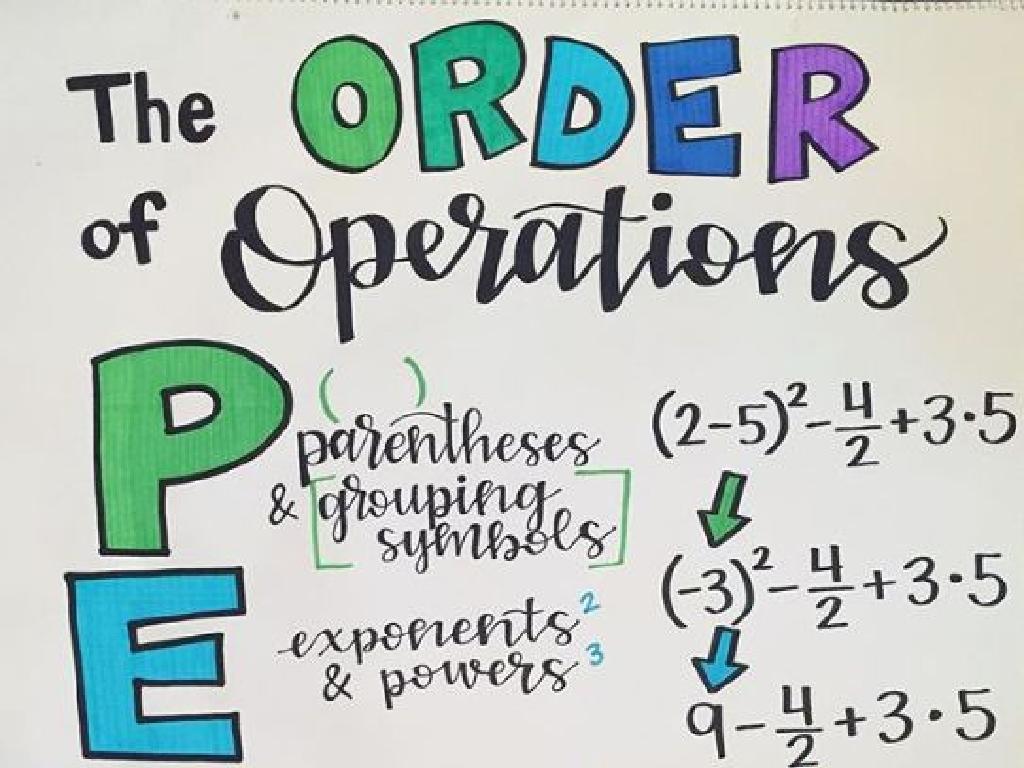 The ORDER
of Operations
P
( )
parentheses
& [grouping
symbols]
(2-5)² - 4/2 + 3·5
(-3)² - 4/2 + 3·5
E
exponents²
& powers³
9 - 4/2 + 3·5